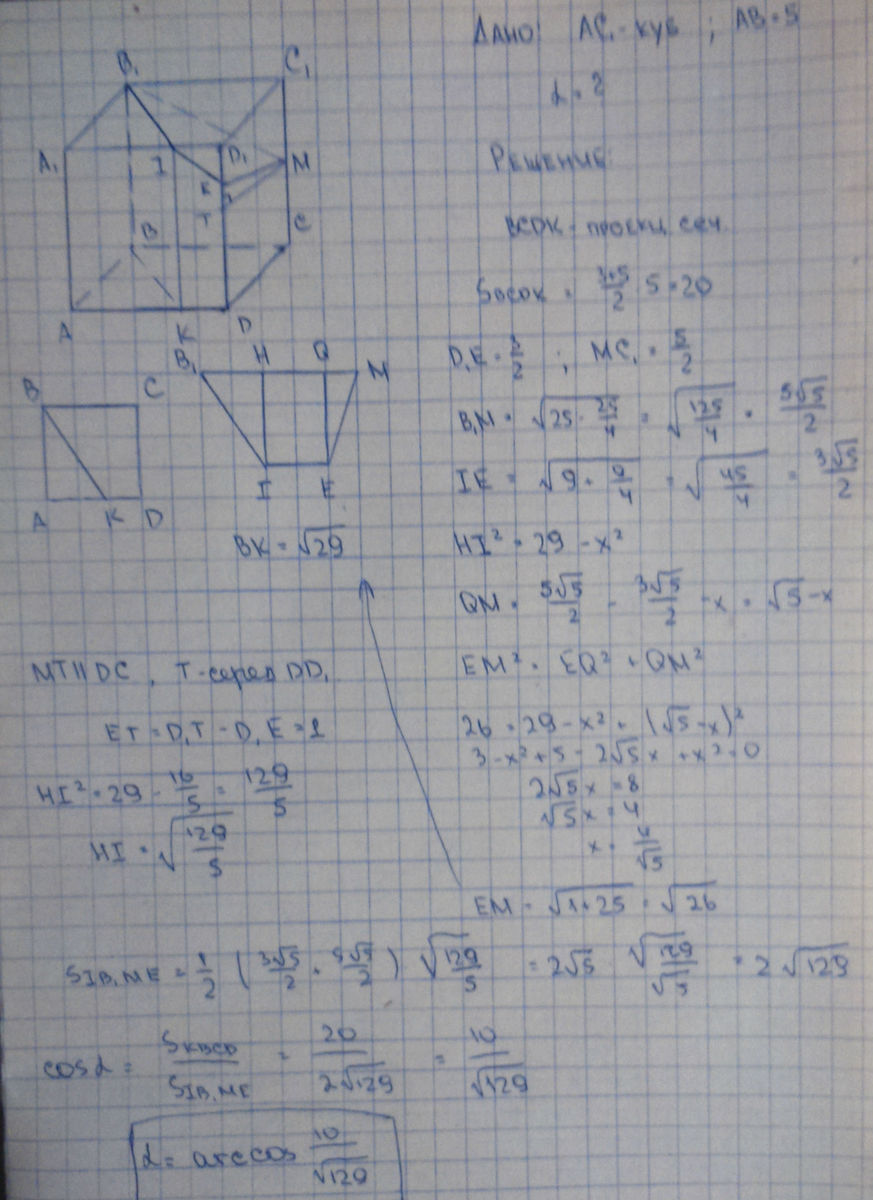 Дано: AC₁ - куб ; AB = 5
α = ?
Решение:
BCDK - проекц. сеч.
S_BCDK = (3+5)/2 · 5 = 20
D₁E = 3/2 ; MC₁ = 5/2
B₁M = √(25 + 25/4) = √(125/4) = 5√5/2
IE = √(9 + 9/4) = √(45/4) = 3√5/2
HI² = 29 - x²
QM = 5√5/2 - 3√5/2 - x = √5 - x
EM² = EQ² + QM²
26 = 29 - x² + (√5 - x)²
3 - x² + 5 - 2√5x + x² = 0
2√5x = 8
√5x = 4
x = 4/√5
EM = √(1+25) = √26
B₁ C₁
A₁ I D₁ M
E
T
B C
A K D
B C
A K D
B₁ H Q M
I E
BK = √29
MT || DC, T - серед DD₁
ET = D₁T - D₁E = 1
HI² = 29 - 16/5 = 129/5
HI = √(129/5)
S_IB₁ME = 1/2 (3√5/2 + 5√5/2) √(129/5) = 2√5 √129/√5 = 2√129
cos α = S_KBCD / S_IB₁ME = 20/(2√129) = 10/√129
α = arccos 10/√129